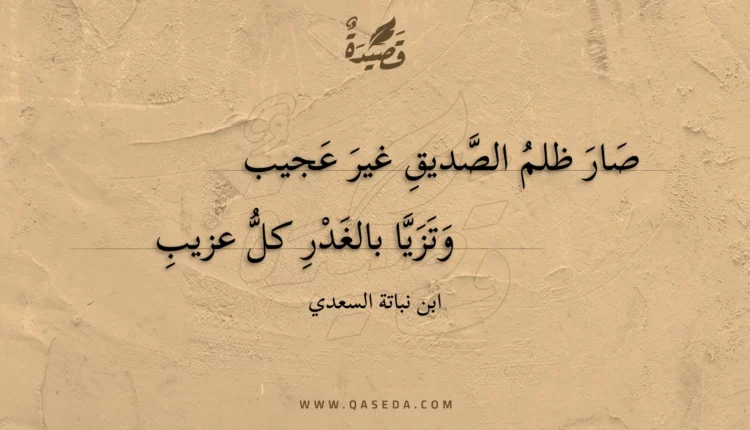 قَصِيدَةٌ
صَارَ ظلمُ الصَّديقِ غيرَ عَجيب
وَتَزَيَّا بالغَدْرِ كلُّ عزيبِ
ابن نباتة السعدي
WWW.QASEDA.COM